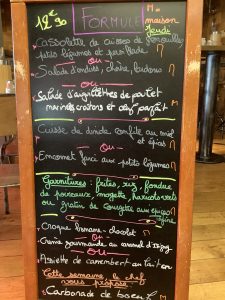 12€90 FORMULE M = maison
Jeudi
Cassolette de cuisses de grenouilles
petits légumes et persillade
ou
Salade d'endives, chèvre, lardons M
ou
Salade d'aiguillettes de poulet
marinés, croutons et œuf parfait M
Cuisse de dinde confite au miel
et épices M
ou
Emincé farci aux petits légumes M
Garnitures : frites, riz, fondue
de poireaux, mogette, haricots verts
ou gratin de courgette aux épices
Croque banane - chocolat M
ou
Crème gourmande au caramel d'Isigny
ou
Assiette de camembert au lait cru
Cette semaine, le chef
vous propose
Carbonade de boeuf M